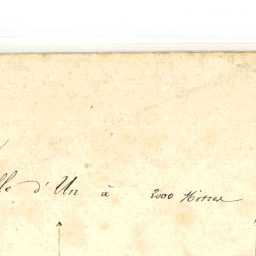 lle d'Un à 2000 Mètres